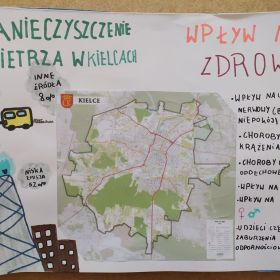 ANIECZYSZCZENIE
IETRZA W KIELCACH
INNE
ŹRÓDŁA
8%
KIELCE
NISKA
EMISJA
WPŁYW N
ZDROW
• WPŁYW NA U
NERWOWY (B
NIEPOKÓJ
• CHOROBY
KRĄŻENIA
• CHOROBY
ODDECHOWE
• WPŁYW NA
• WPŁYW NA
♀ ♂
• U DZIECI CZĘ
ZABURZENIA
ODPORNOŚCIOW